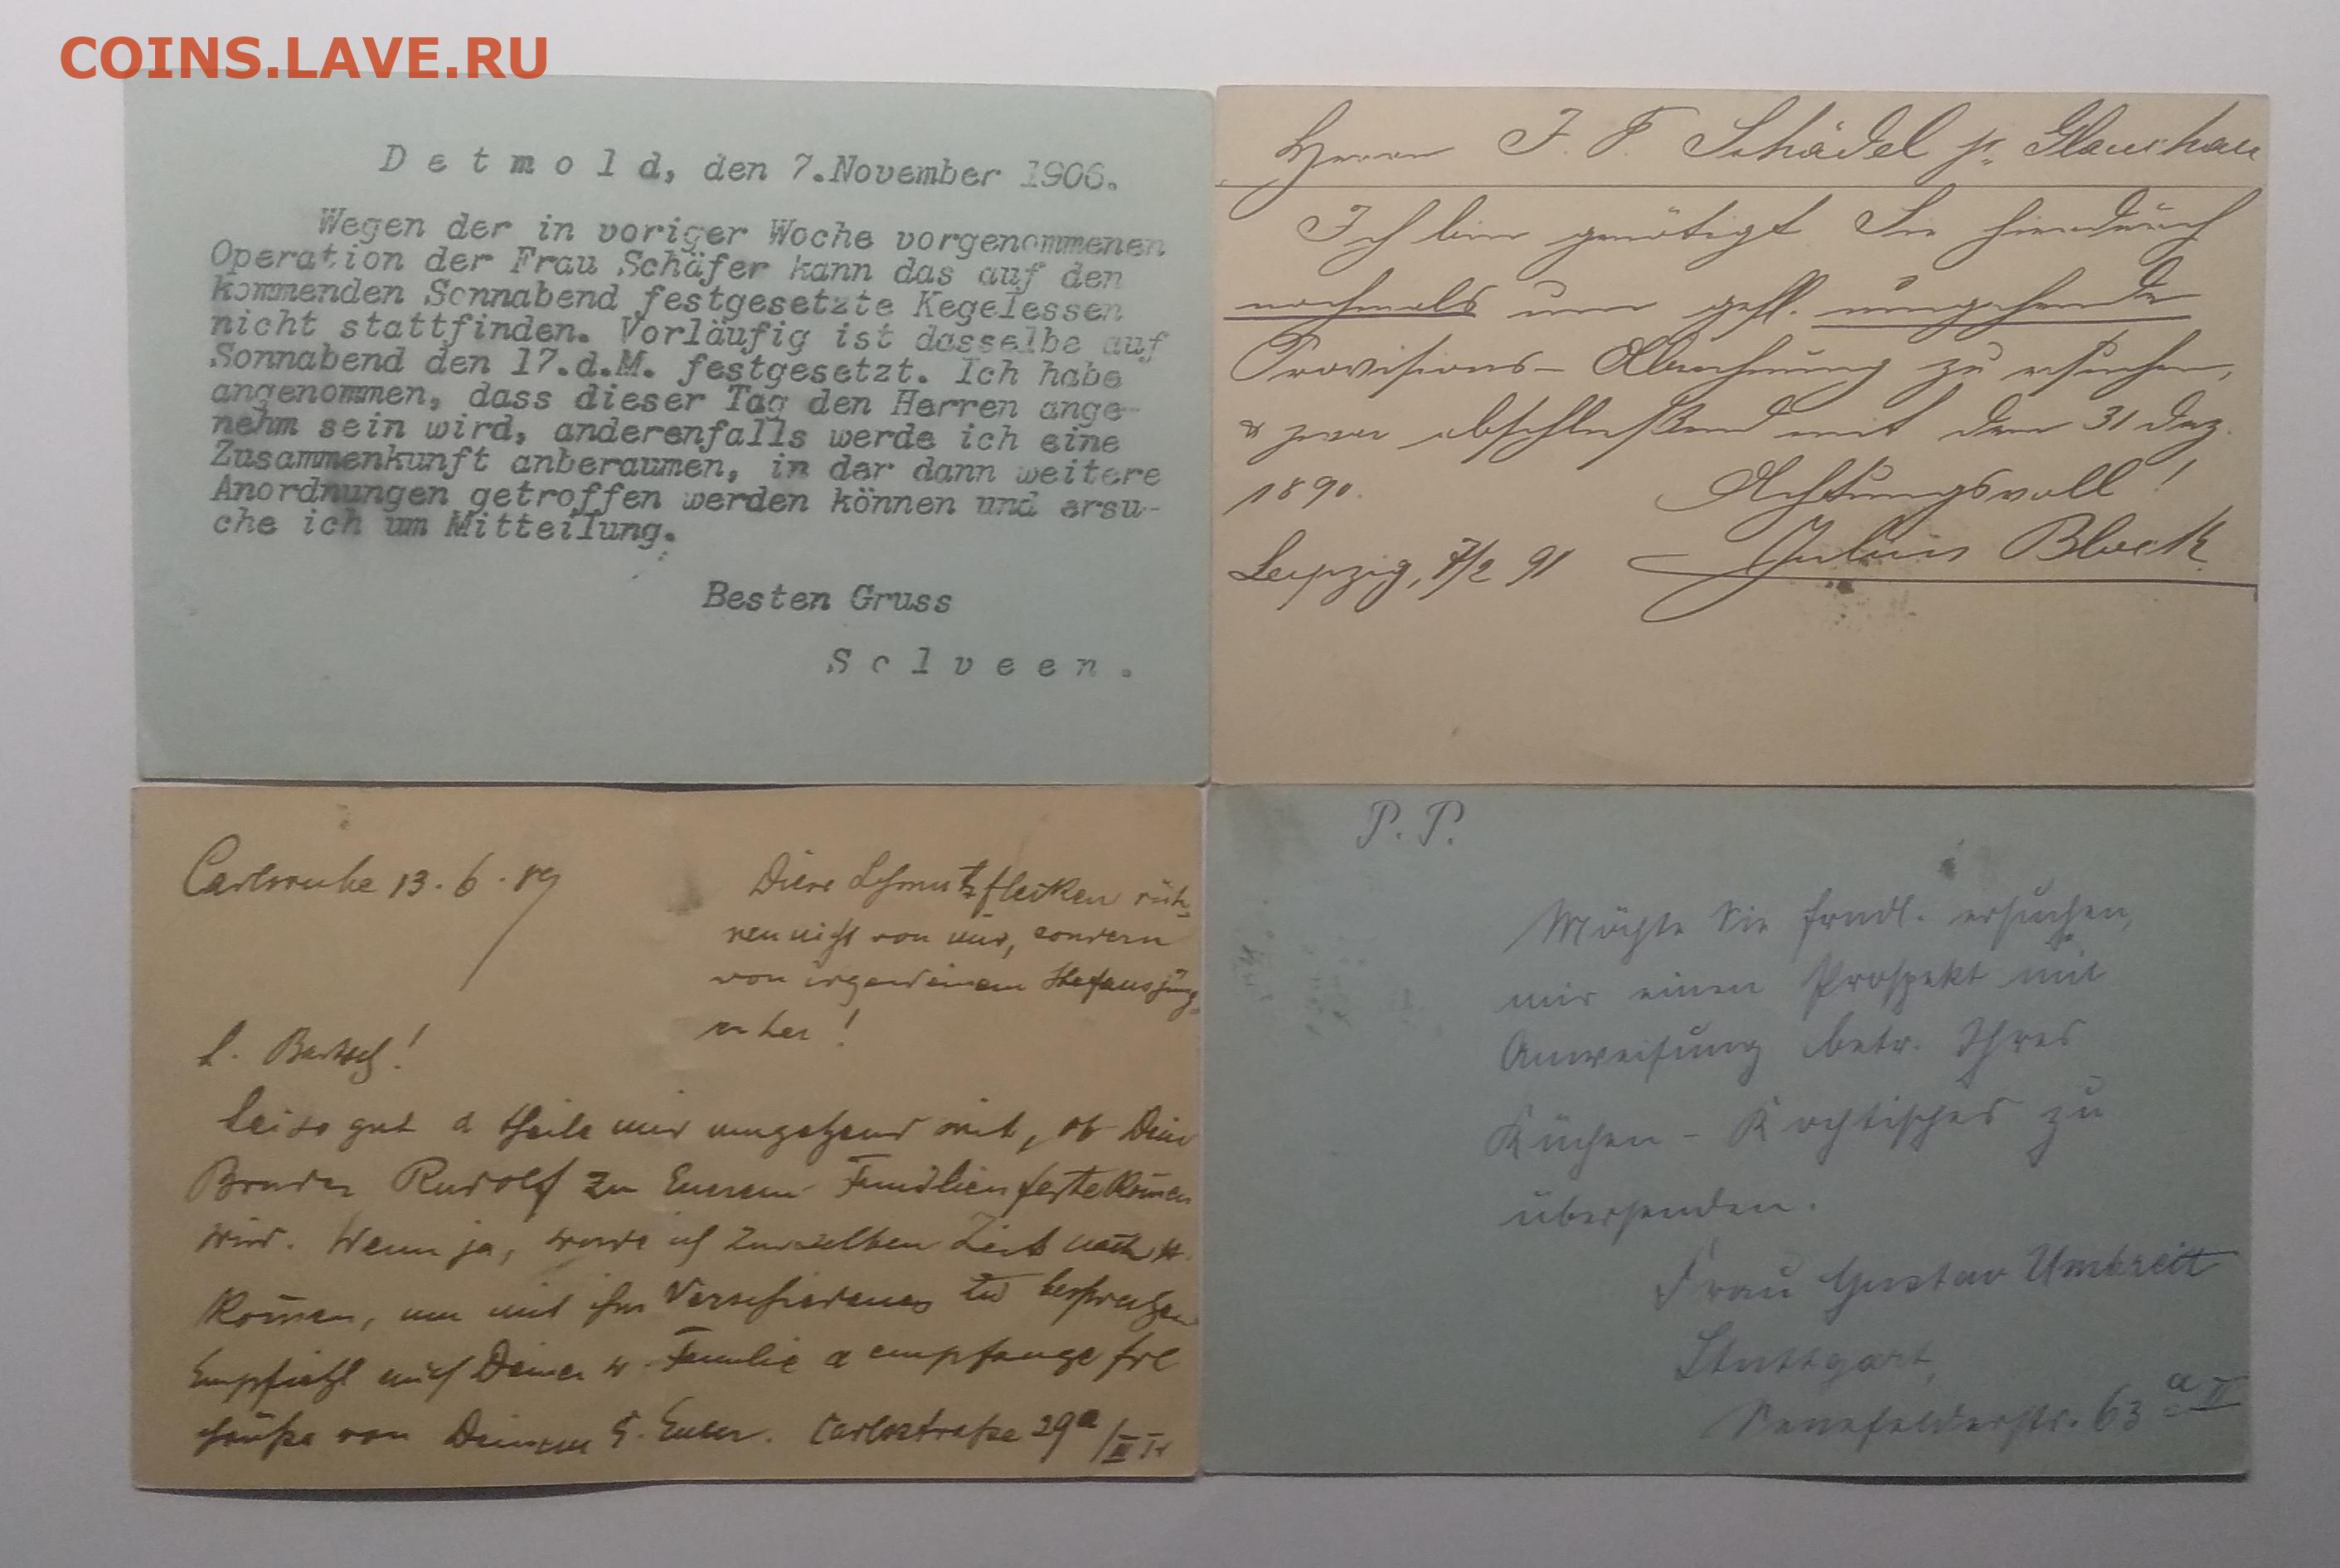 COINS.LAVE.RU
Detmold, den 7.November 1906.
Wegen der in voriger Woche vorgenommenen
Operation der Frau Schäfer kann das auf den
kommenden Sonnabend festgesetzte Kegelessen
nicht stattfinden. Vorläufig ist dasselbe auf
Sonnabend den 17.d.M. festgesetzt. Ich habe
angenommen, dass dieser Tag den Herren ange-
nehm sein wird, anderenfalls werde ich eine
Zusammenkunft anberaumen, in der dann weitere
Anordnungen getroffen werden können und ersu-
che ich um Mitteilung.
Besten Gruss
Solveen.
Herrn J. F. Schädel jr. Glauchau
Ich bin genötigt Sie hierdurch
nochmals um gefl. umgehende
Provisions- Abrechnung zu ersuchen,
& zwar abschließend mit dem 31 Dez.
1890. Achtungsvoll!
Leipzig, 7/2 91 Julius Block
Carlsruhe 13. 6. 89
Diese Schmutzflecken rüh-
ren nicht von mir, sondern
von irgend einem
her!
l. Bartsch!
Sei so gut & theile mir umgehend mit, ob Dein
Bruder Rudolf zu Eurem Familienfeste kom̄en
wird. Wenn ja, werde ich zu derselben Zeit nach
kom̄en, um mit ihm Verschiedenes zu besprechen.
Empfiehl mich Deiner w. Familie & empfange frl
Grüße von Deinem Carlsstraße 29a/III
P. P.
Möchte Sie frndl. ersuchen,
mir einen Prospekt mit
Anweisung betr. Ihres
Küchen-Kochtisches zu
übersenden.
Frau Gustav Umbreit
Stuttgart,
Senefelderstr. 63 a II